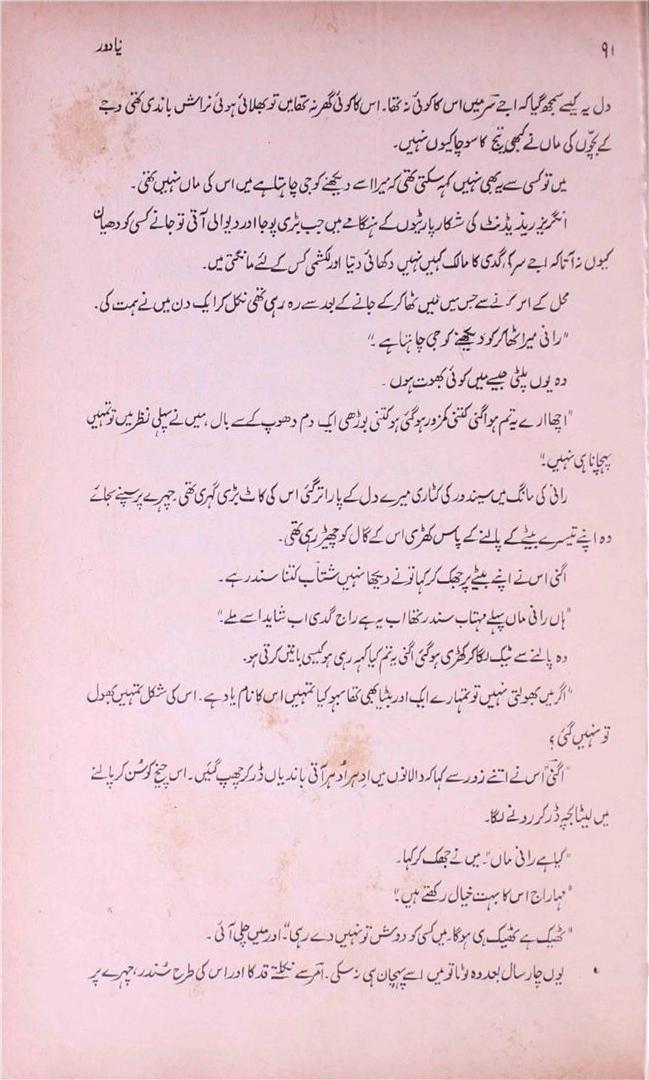 ۹۱
نیا دور
دل یہ کیسے سمجھ گیا کہ اجے سَر میں اس کا کوئی نہ تھا۔ اس کا کوئی گھر نہ تھا میں تو بھلائی ہوئی نراش باندی تھی وجے
کے بچّوں کی ماں نے کبھی تیج کا سوچا کیوں نہیں۔
میں تو کسی سے یہ بھی نہیں کہہ سکتی تھی کہ میرا اسے دیکھنے کو جی چاہتا ہے میں اس کی ماں نہیں تھی۔
انگریز ریذیڈنٹ کی شکار پارٹیوں کے ہنگامے میں جب بڑی پوجا اور دیوالی آتی تو جانے کسی کو دھیان
کیوں نہ آتا کہ اجے سر گدی کا مالک کہیں نہیں دکھائی دیتا اور لکشمی کس کے لئے مانگتی میں۔
محل کے اس کونے سے جس میں میں ٹھاکر کے جانے کے بعد سے رہ رہی تھی نکل کر ایک دن میں نے ہمت کی۔
"رانی میرا ٹھاکر کو دیکھنے کو جی چاہتا ہے۔"
وہ یوں پلٹی جیسے میں کوئی بھوت ہوں۔
"اچھا ارے یہ تم ہو اگنی کتنی کمزور ہو گئی ہو کتنی بوڑھی ایک دم دھوپ کے سے بال، میں نے پہلی نظر میں تو تمہیں
پہچانا ہی نہیں۔"
رانی کی مانگ میں سیندور کی کٹاری میرے دل کے پار اتر گئی اس کی کاٹ بڑی گہری تھی۔ چہرے پر سپنے سجائے
وہ اپنے تیسرے بیٹے کے پالنے کے پاس کھڑی اس کے گال کو چھیڑ رہی تھی۔
اگنی اس نے اپنے بیٹے پر جھک کر کہا تو نے دیکھا نہیں شتاب کتنا سندر ہے۔
"ہاں رانی ماں پہلے مہتاب سندر تھا اب یہ ہے راج گدی اب شاید اسے ملے۔"
وہ پالنے سے ٹیک لگا کر کھڑی ہو گئی اگنی یہ تم کیا کہہ رہی ہو کیسی باتیں کرتی ہو۔
"اگر میں بھولتی نہیں تو تمہارے ایک اور بیٹا بھی تھا سبو کیا تمہیں اس کا نام یاد ہے۔ اس کی شکل تمہیں بھول
تو نہیں گئی؟
"اگنی" اس نے اتنے زور سے کہا کہ دالانوں میں ادھر اُدھر آتی باندیاں ڈر کر چھپ گئیں۔ اس چیخ کو سُن کر پالنے
میں لیٹا بچہ ڈر کر رونے لگا۔
"کیا ہے رانی ماں"۔ میں نے جھک کر کہا۔
"مہاراج اس کا بہت خیال رکھتے ہیں۔"
"ٹھیک ہے ٹھیک ہی ہوگا۔ میں کسی کو دوش تو نہیں دے رہی" اور میں چلی آئی۔
یوں چار سال بعد وہ لوٹا تو میں اسے پہچان ہی نہ سکی۔ اَمر سے نکلتے قد کا اور اس کی طرح سُندر، چہرے پر